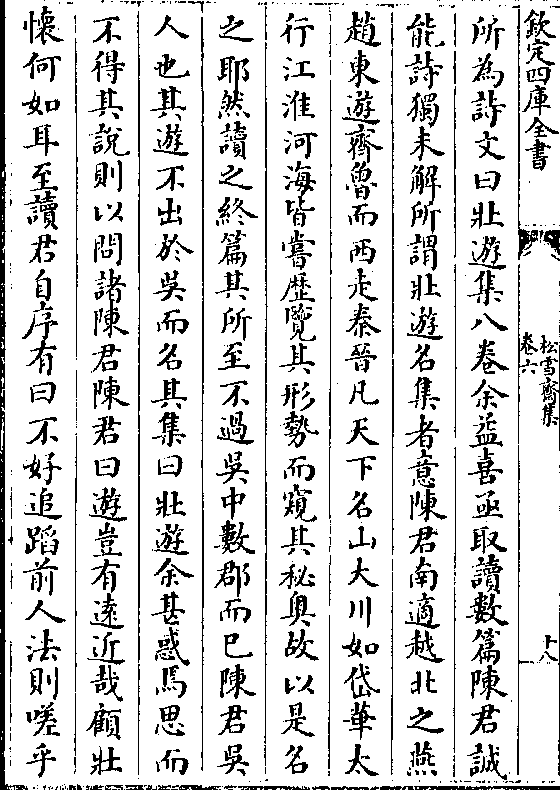 欽定四庫全書
松雪齋集
卷六
十八
所為詩文曰壯遊集八卷余益喜亟取讀數篇陳君誠
能詩獨未解所謂壯遊名集者意陳君南適越北之燕
趙東遊齊魯而西走秦晉凡天下名山大川如岱華太
行江淮河海皆嘗歴覽其形勢而窺其秘奥故以是名
之耶然讀之終篇其所至不過吳中數郡而已陳君吳
人也其遊不出於吳而名其集曰壯遊余甚惑焉思而
不得其說則以問諸陳君陳君曰遊豈有逺近哉顧壯
懷何如耳至讀君自序有曰不好追蹈前人法則嗟乎